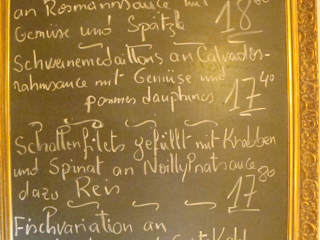 an Rosmarinsauce mit
Gemüse und Spätzle 18 80
Schweinemedaillons an Calvados-
rahmsauce mit Gemüse und
pommes dauphines 17 40
Schollenfilets gefüllt mit Krabben
und Spinat an Noilly Pratsauce
dazu Reis 17 80
Fischvariation an